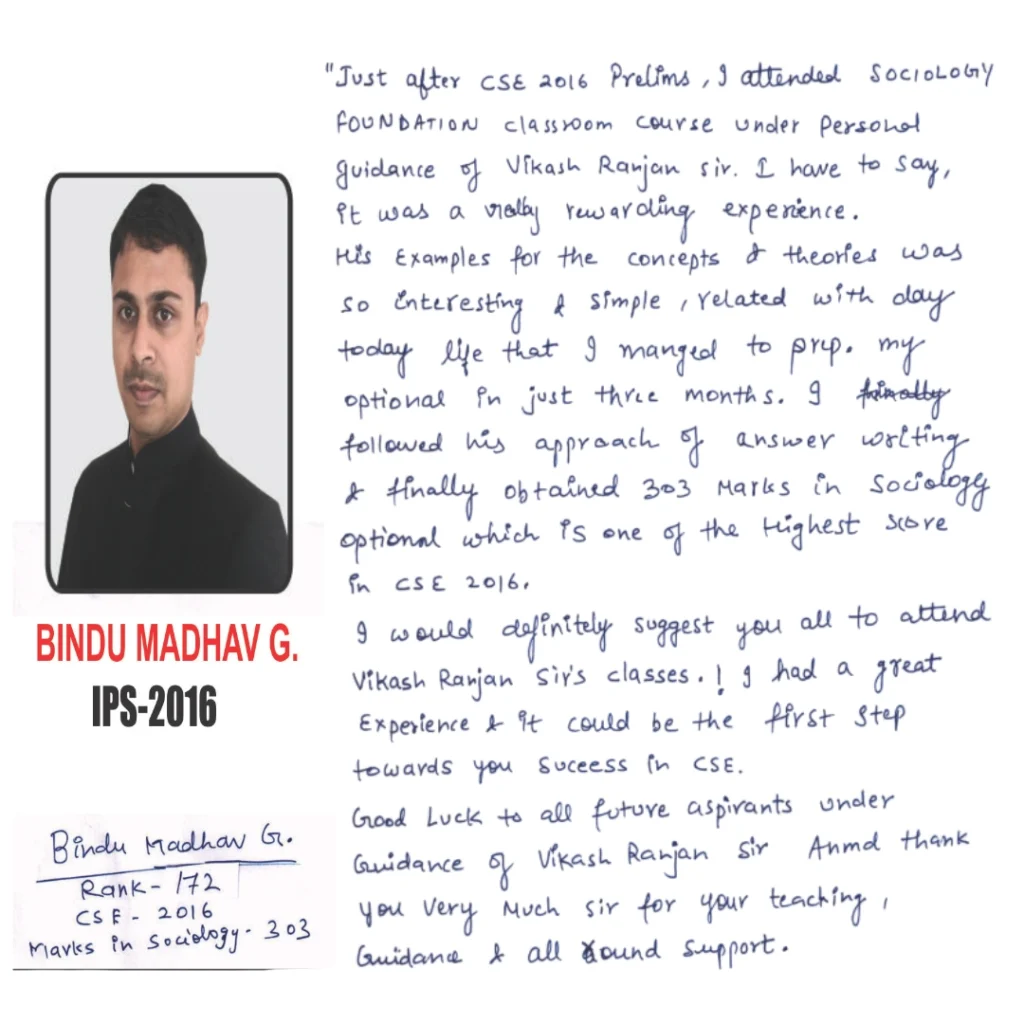 "Just after CSE 2016 Prelims, I attended SOCIOLOGY
FOUNDATION classroom course under Personal
guidance of Vikash Ranjan sir. I have to say,
it was a really rewarding experience.
His Examples for the concepts & theories was
so interesting & simple, related with day
today life that I manged to prep. my
optional in just three months. I finally
followed his approach of answer writing
& finally obtained 303 Marks in Sociology
optional which is one of the Highest score
in CSE 2016.
I would definitely suggest you all to attend
Vikash Ranjan Sir's classes.! I had a great
Experience & it could be the first step
towards you Success in CSE.
Good Luck to all future aspirants under
Guidance of Vikash Ranjan Sir Anmd thank
you Very Much sir for your teaching,
Guidance & all round support.
BINDU MADHAV G.
IPS-2016
Bindu Madhav G.
Rank - 172
CSE - 2016
Marks in Sociology - 303